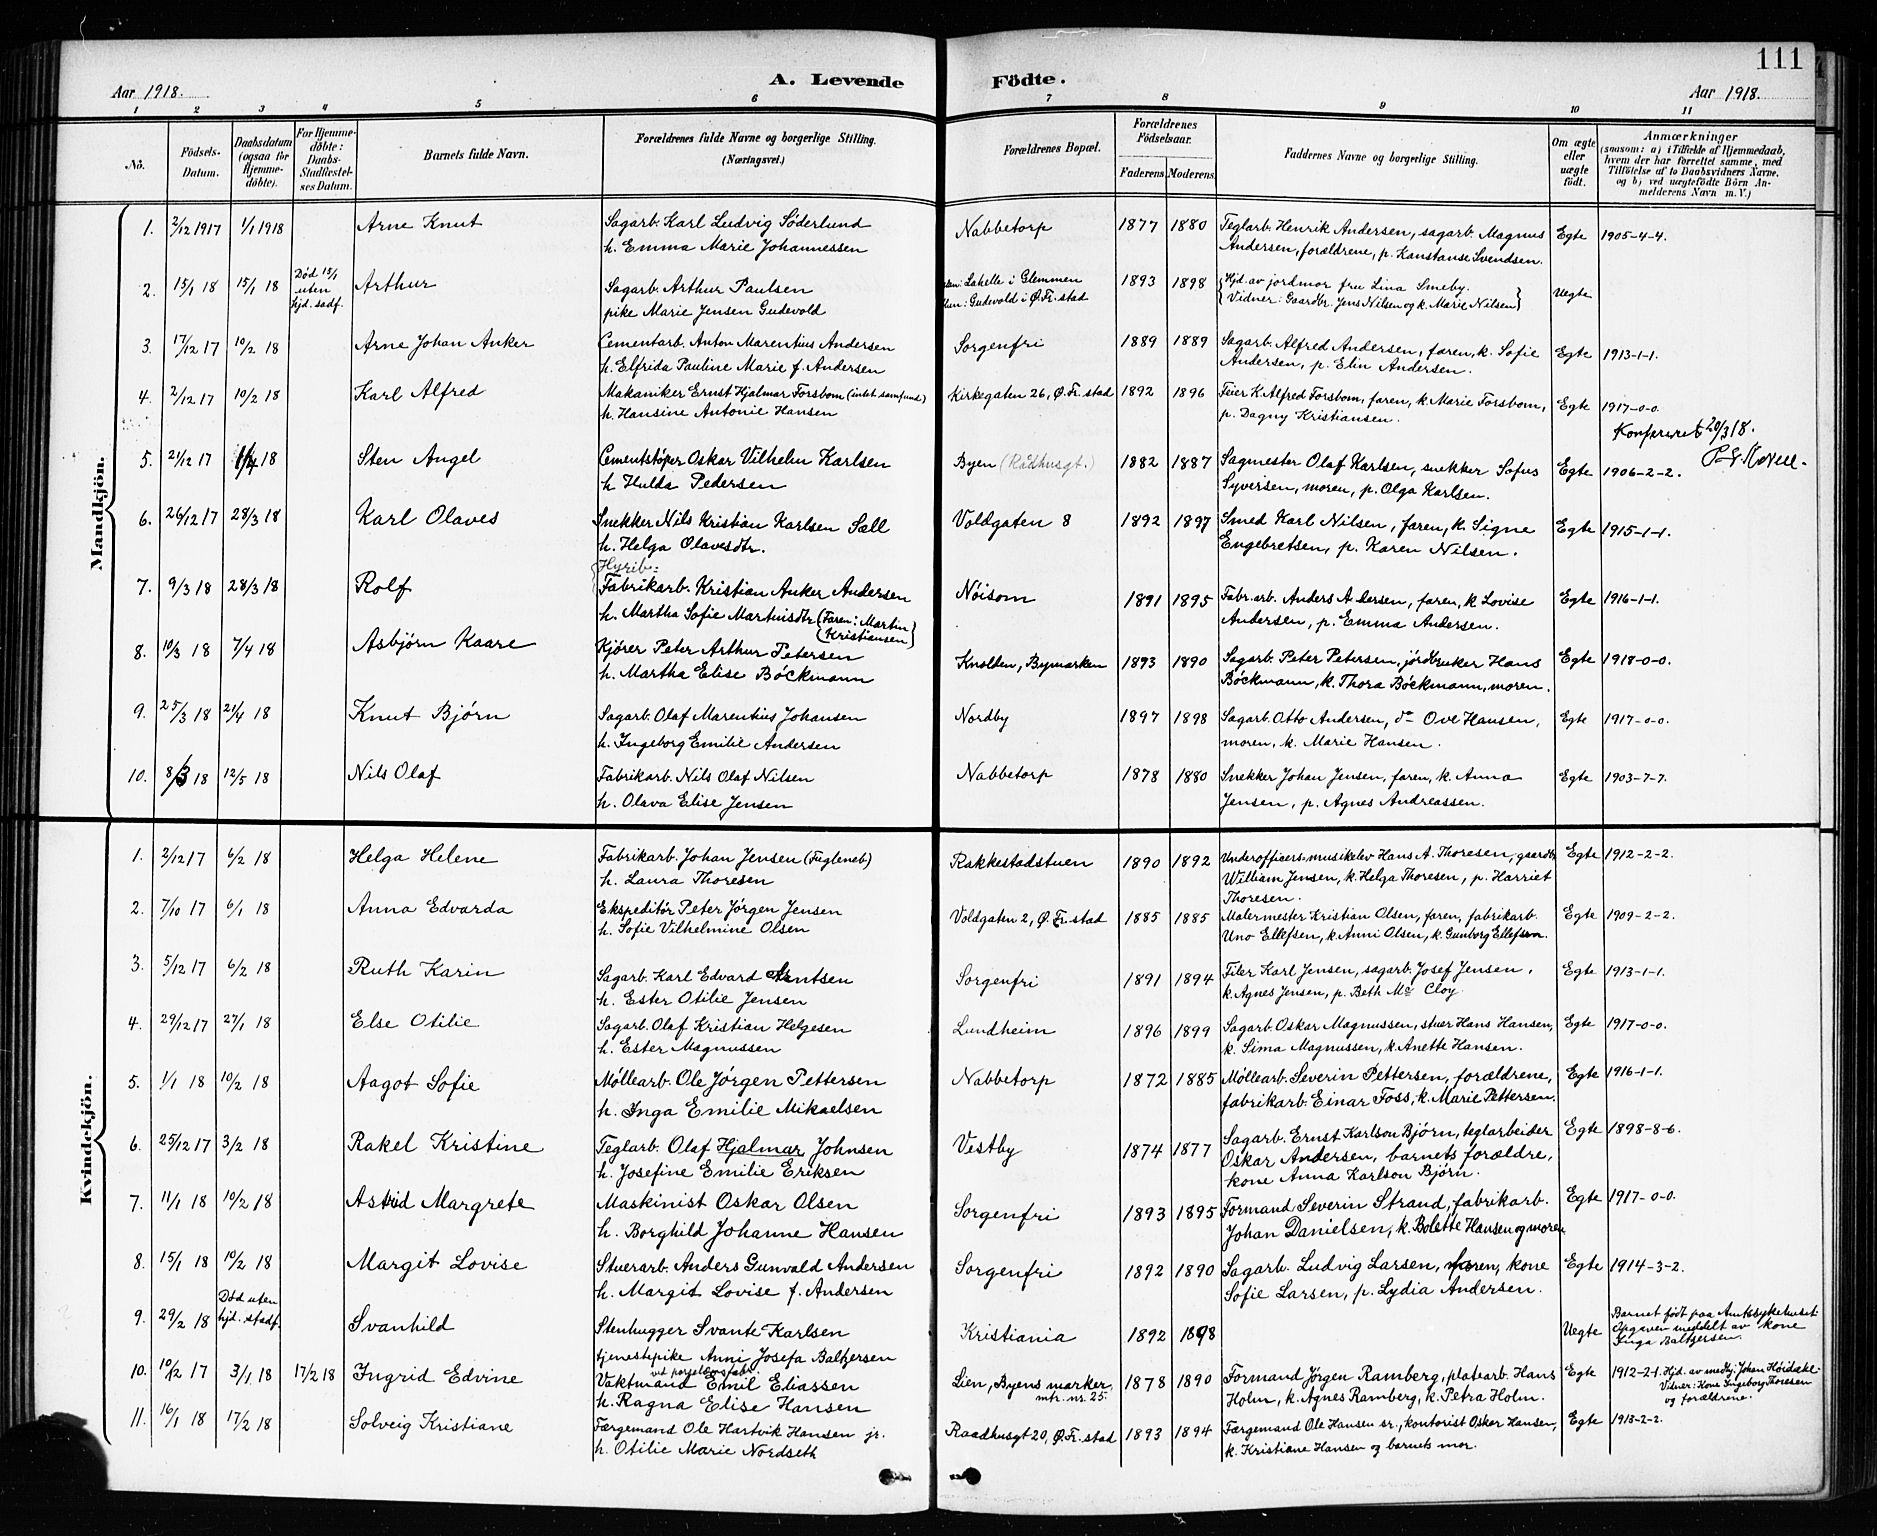 111
Aar 1918. A. Levende Födte. Aar 1918.
1 2 3 4 5 6 7 8 9 10 11
No. Födsels-Datum. Daabsdatum (ogsaa for Hjemme-døbte). For Hjemme-døbte: Daabs-Stadfæstel-ses Datum. Barnets fulde Navn. Forældrenes fulde Navne og borgerlige Stilling. (Næringsvei.) Forældrenes Bopæl. Forældrenes Födselsaar. Faderens. Moderens. Faddernes Navne og borgerlige Stilling. Om ægte eller uægte født. Anmærkninger (saasom: a) i Tilfælde af Hjemmedaab, hvem der har forrettet samme, med Tilføielse af to Daabsvidners Navne, og b) ved uægtefödte Börn An-melderens Navn m. V.)
Mandkjön.
1. 2/12 1917 1/1 1918 Arne Knut Sagarb. Karl Ludvig Söderlund Nabbetorp 1877 1880 Teglarb. Henrik Andersen, sagarb. Magnus Egte 1905-4-4.
h. Emma Marie Johannessen Andersen, forældrene, p. Konstanse Svendsen.
2. 15/1 18 15/1 18 Død 15/1 uten hjd. stadf. Arthur Sagarb. Arthur Paulsen Lahelle i Glemmen 1893 1898 Hjd. av jordmor fru Lina Smeby. Uegte
pike Marie Jensen Gudevold Gudevold i Ø. Fr.stad Vidner: Gaardbr. Jens Nilsen og k. Marie Nilsen
3. 17/12 17 10/2 18 Arne Johan Anker Cementarb. Anton Marentius Andersen Sorgenfri 1889 1889 Sagarb. Alfred Andersen, faren, k. Sofie Egte 1913-1-1.
h. Elfrida Pauline Marie f. Andersen Andersen, p. Elin Andersen.
4. 2/12 17 10/2 18 Karl Alfred Makaniker Ernst Hjalmar Forsbom (intet samfund) Kirkegaten 26, Ø. Fr. stad 1892 1896 Feier K. Alfred Forsbom, faren, k. Marie Forsbom, Egte 1917-0-0.
h. Hansine Antonie Hansen p. Dagny Kristiansen. Konfereret 20/3 18.
5. 21/12 17 1/4 18 Sten Angel Cementstøper Oskar Vilhelm Karlsen Byen (Rådhusgt.) 1882 1887 Sagmester Olaf Karlsen, snekker Sofus Egte 1906-2-2.
h Hulda Pedersen Syversen, moren, p. Olga Karlsen.
6. 26/12 17 28/3 18 Karl Olaves Snekker Nils Kristian Karlsen Sall Voldgaten 8 1892 1897 Smed Karl Nilsen, faren, k. Signe Egte 1915-1-1.
h. Helga Olavesdtr. Engebretsen, p. Karen Nilsen.
Hyrib:
7. 9/3 18 28/3 18 Rolf Fabrikarb. Kristian Anker Andersen Nöisom 1891 1895 Fabr.arb. Anders Andersen, faren, k Lovise Egte 1916-1-1.
h. Martha Sofie Martinsdtr (Faren: Martin Kristiansen) Andersen, p. Emma Andersen.
8. 10/3 18 7/4 18 Asbjörn Kaare Kjörer Peter Arthur Petersen Knolden, Bymarken 1893 1890 Sagarb. Peter Petersen, jordbruker Hans Egte 1918-0-0.
h. Martha Elise Böckmann Böckmann, k. Thora Böckmann, moren.
9. 25/3 18 21/4 18 Knut Bjørn Sagarb. Olaf Marentius Johansen Nordby 1897 1898 Sagarb. Otto Andersen, do Ove Hansen, Egte 1917-0-0.
h. Ingeborg Emilie Andersen moren, k. Marie Hansen.
10. 8/3 18 12/5 18 Nils Olaf Fabrikarb. Nils Olaf Nilsen Nabbetorp 1878 1880 Snekker Johan Jensen, faren, k. Anna Egte 1903-7-7.
h. Olava Elise Jensen Jensen, p. Agnes Andreassen.
Kvindekjön.
1. 2/12 17 6/2 18 Helga Helene Fabrikarb. Johan Jensen (Fugleneb) Rakkestadstuen 1890 1892 Underofficers musikelev Hans A. Thoresen, gaardbr. Egte 1912-2-2.
h. Laura Thoresen William Jensen, k. Helga Thoresen, p. Harriet
Thoresen.
2. 7/10 17 6/1 18 Anna Edvarda Ekspeditör Peter Jörgen Jensen Voldgaten 2, Ø. Fr. stad 1885 1885 Malermester Kristian Olsen, faren, fabrikarb. Egte 1909-2-2.
h. Sofie Vilhelmine Olsen Uno Ellefsen, k. Anni Olsen, k. Gunborg Ellefsen.
3. 5/12 17 6/2 18 Ruth Karin Sagarb. Karl Edvard Arntsen Sorgenfri 1891 1894 Filer Karl Jensen, sagarb. Josef Jensen, Egte 1913-1-1.
h. Ester Otilie Jensen k. Agnes Jensen, p. Beth Mc Cloy.
4. 29/12 17 27/1 18 Else Otilie Sagarb. Olaf Kristian Helgesen Lundheim 1896 1899 Sagarb. Oskar Magnussen, stuer Hans Hansen, Egte 1917-0-0.
h. Ester Magnussen k. Sima Magnussen, k. Anette Hansen.
5. 1/1 18 10/2 18 Aagot Sofie Møllearb. Ole Jörgen Pettersen Nabbetorp 1872 1885 Møllearb. Severin Pettersen, forældrene, Egte 1916-1-1.
h. Inga Emilie Mikaelsen fabrikarb. Einar Foss, k. Marie Pettersen.
6. 25/12 17 3/2 18 Rakel Kristine Teglarb. Olaf Hjalmar Johnsen Vestby 1874 1877 Sagarb. Ernst Karlson Björn, teglarbeider Egte 1898-8-6.
h. Josefine Emilie Eriksen Oskar Andersen, barnets forældre,
kone Anna Karlson Björn.
7. 11/1 18 10/2 18 Astrid Margrete Maskinist Oskar Olsen Sorgenfri 1893 1895 Formand Severin Strand, fabrikarb. Egte 1917-0-0.
h. Borghild Johanne Hansen Johan Danielsen, k. Bolette Hansen og moren
8. 15/1 18 10/2 18 Margit Lovise Stuerarb. Anders Gunvald Andersen Sorgenfri 1892 1890 Sagarb. Ludvig Larsen, faren, kone Egte 1914-3-2.
h. Margit Lovise f. Andersen Sofie Larsen, p. Lydia Andersen.
9. 29/2 18 Død uten hjd. stadf. Svanhild Stenhugger Svante Karlsen Kristiania 1892 1898 Uegte Barnet født paa Amtssykehuset. Opgaven meddelt av kone Inga Baltzersen.
tjenestepike Anni Josefa Baltzersen
10. 10/12 17 3/1 18 17/2 18 Ingrid Edvine Vaktmand ved porselænsfabr. Emil Eliassen Lien, Byens marker mtr. nr. 25. 1878 1890 Formand Jørgen Ramberg, platarb. Hans Egte 1912-2-1. Hjd. av medhj. Johan Höidahl. Vidner: Kone Ingeborg Thoresen og forældrene.
h. Ragna Elise Hansen Holm, k. Agnes Ramberg, k. Petra Holm.
11. 16/1 18 17/2 18 Solveig Kristiane Færgemand Ole Hartvik Hansen jr. Raadhusgt 20, Ø. Fr. stad 1893 1894 Færgemand Ole Hansen sr., kontorist Oskar Hansen, Egte 1913-2-2.
h. Otilie Marie Nordseth k. Kristiane Hansen og barnets mor.